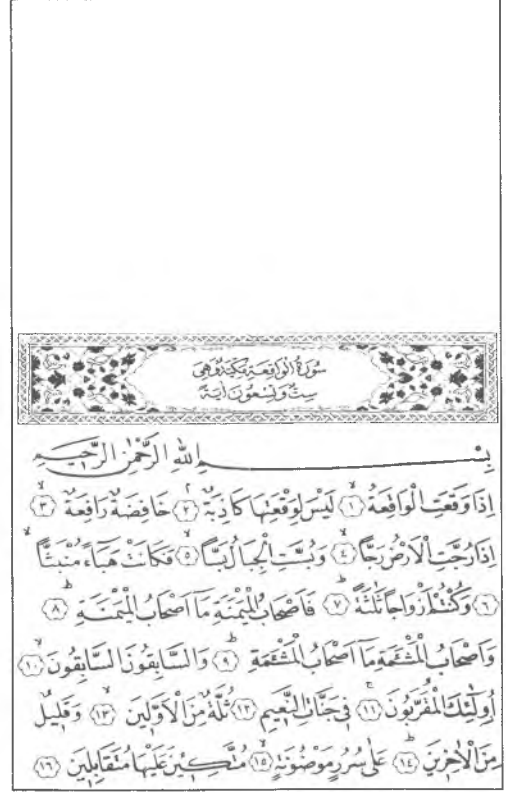 سُورَةُ الْوَاقِعَةِ مَكِّيَّةٌ وَهِيَ
سِتٌّ وَتِسْعُونَ اٰيَةً
بِسْمِ اللّٰهِ الرَّحْمٰنِ الرَّحِيمِ
اِذَا وَقَعَتِ الْوَاقِعَةُ ﴿١﴾ لَيْسَ لِوَقْعَتِهَا كَاذِبَةٌ ﴿٢﴾ خَافِضَةٌ رَافِعَةٌ ﴿٣﴾
اِذَا رُجَّتِ الْاَرْضُ رَجًّا ﴿٤﴾ وَبُسَّتِ الْجِبَالُ بَسًّا ﴿٥﴾ فَكَانَتْ هَبَاءً مُنْبَثًّا
﴿٦﴾ وَكُنْتُمْ اَزْوَاجًا ثَلٰثَةً ﴿٧﴾ فَاَصْحَابُ الْمَيْمَنَةِ مَا اَصْحَابُ الْمَيْمَنَةِ ﴿٨﴾
وَاَصْحَابُ الْمَشْـَٔمَةِ مَا اَصْحَابُ الْمَشْـَٔمَةِ ﴿٩﴾ وَالسَّابِقُونَ السَّابِقُونَ ﴿١٠﴾
اُولٰٓئِكَ الْمُقَرَّبُونَ ﴿١١﴾ فِي جَنَّاتِ النَّعِيمِ ﴿١٢﴾ ثُلَّةٌ مِنَ الْاَوَّلِينَ ﴿١٣﴾ وَقَلِيلٌ
مِنَ الْاٰخِرِينَ ﴿١٤﴾ عَلٰى سُرُرٍ مَوْضُونَةٍ ﴿١٥﴾ مُتَّكِـِٔينَ عَلَيْهَا مُتَقَابِلِينَ ﴿١٦﴾